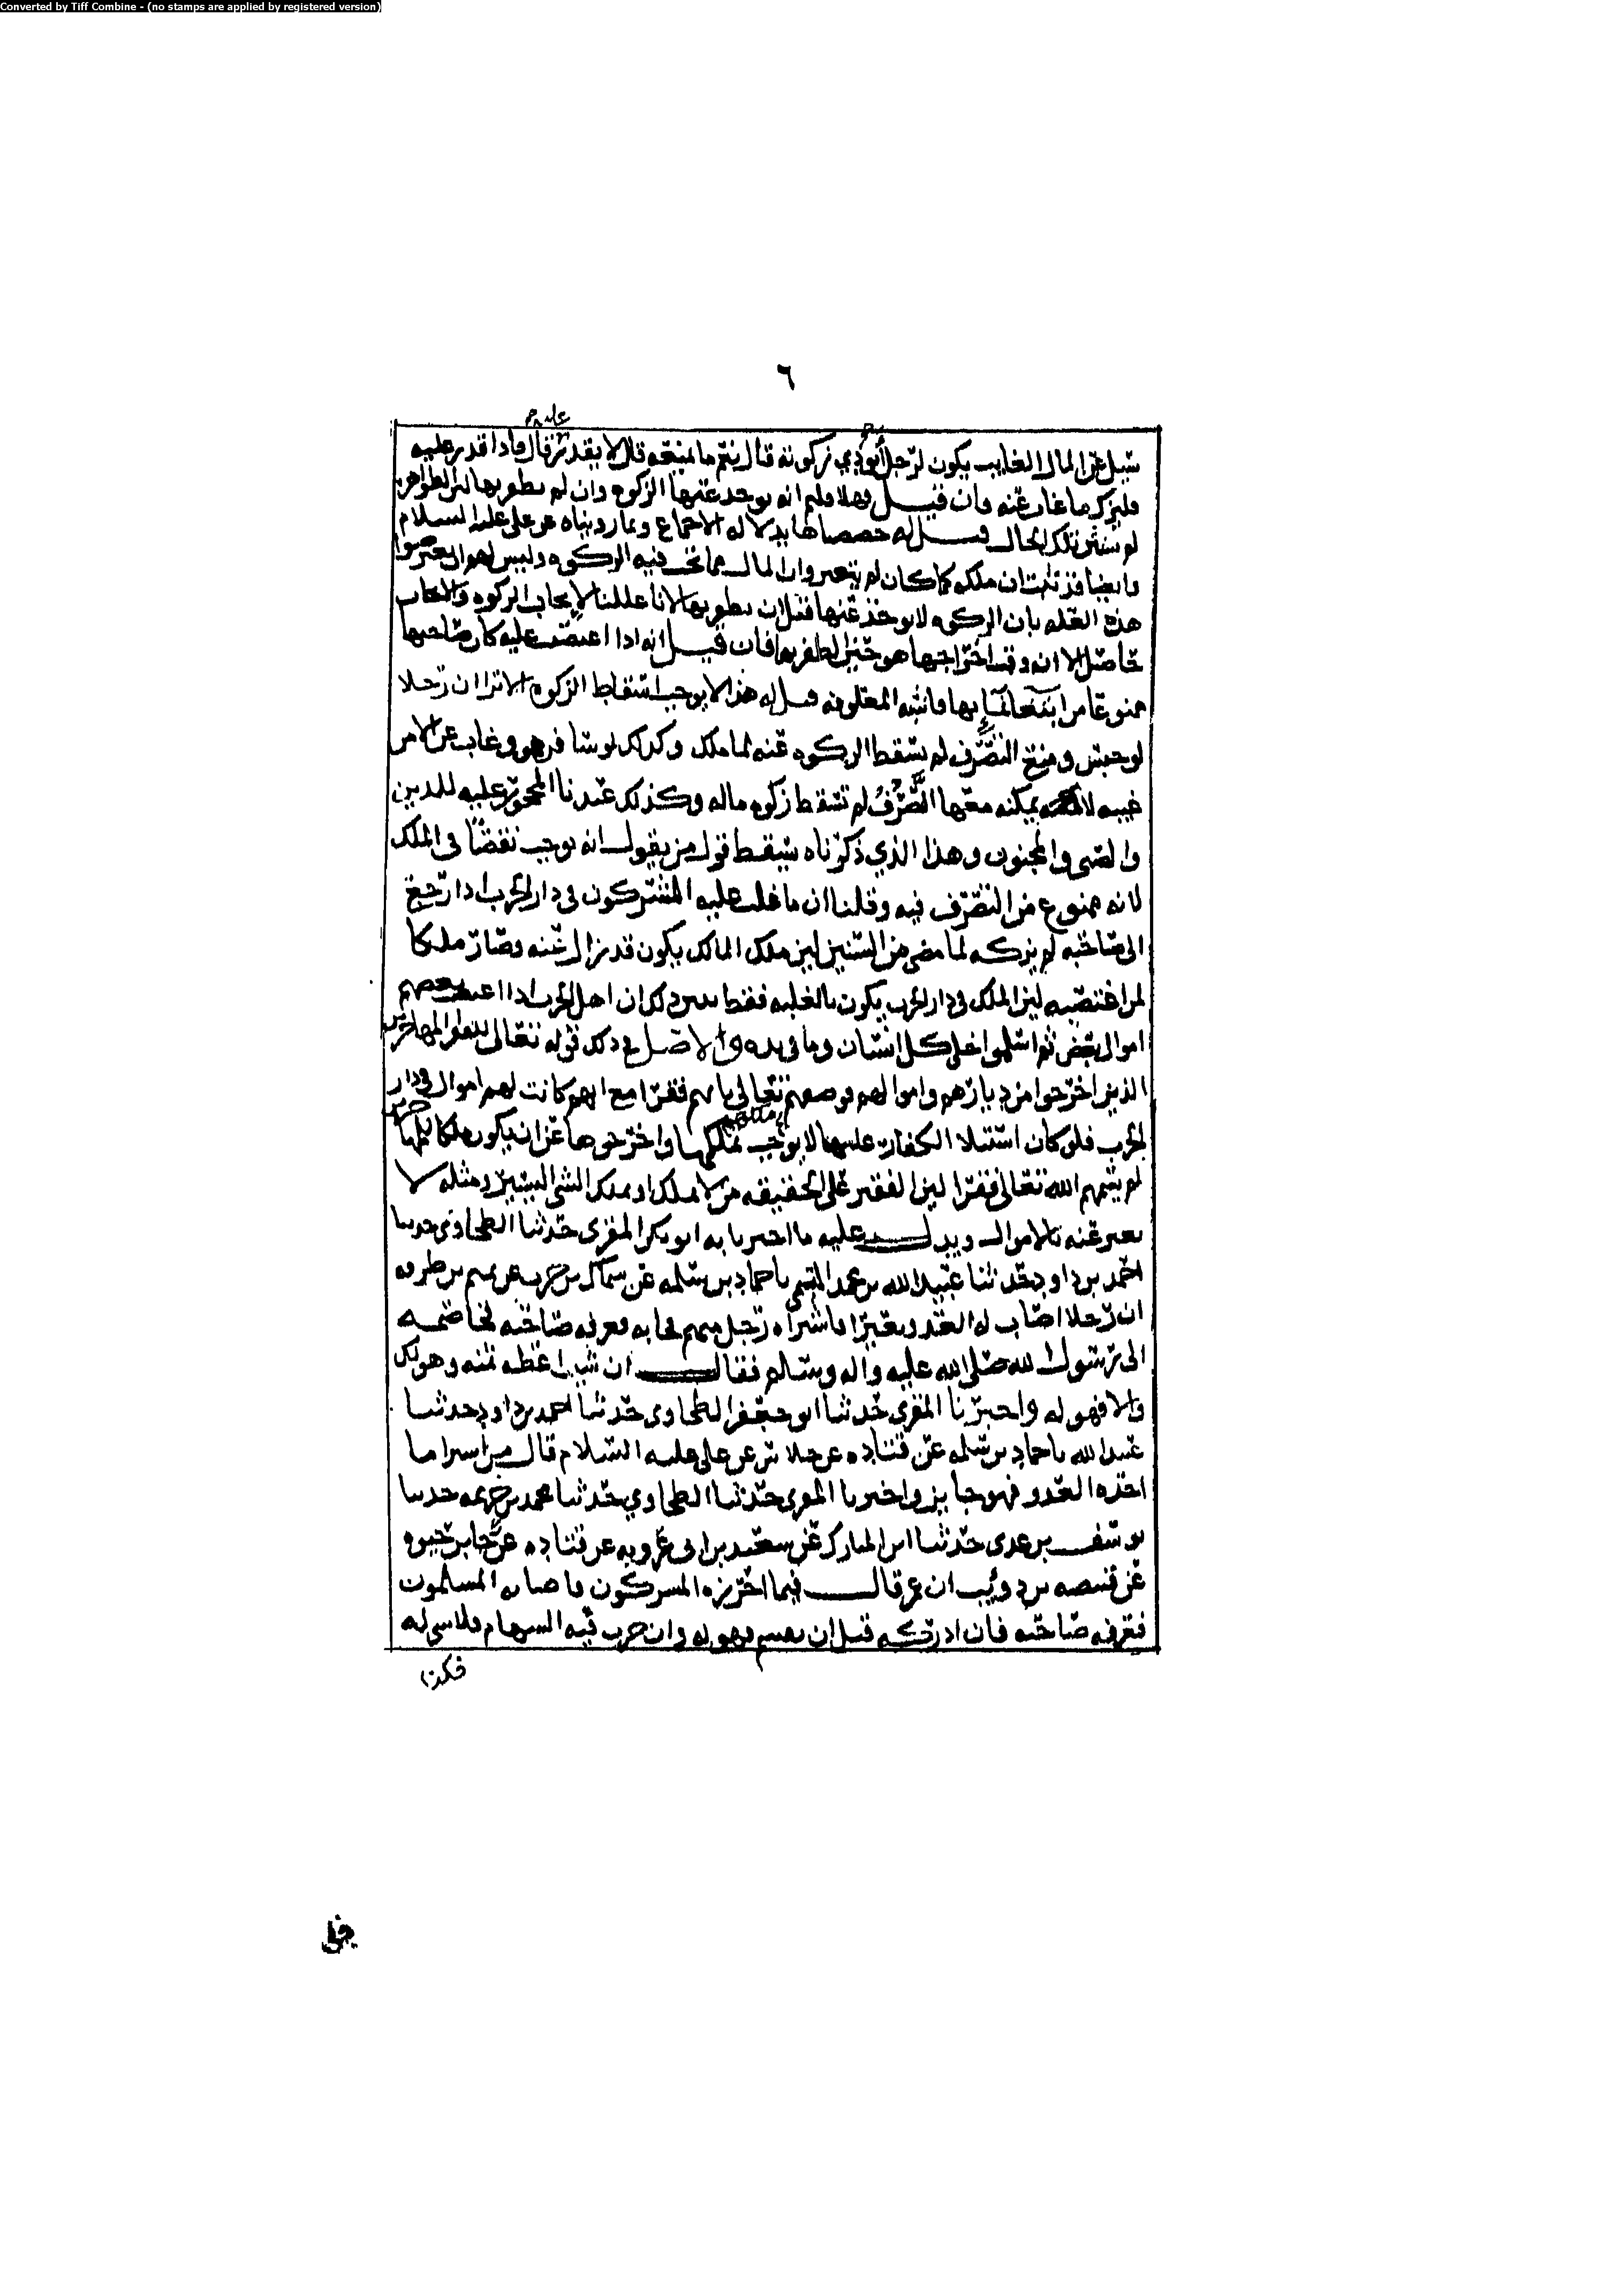 Converted by Tiff Combine - (no stamps are applied by registered version)
٦
عليه
سئل عن المال الغايب يكون لرجل أيؤدي زكوته قال نعم ما يمنعه قال لا يقدر قال فاذا قدر عليه
فليزك ما غاب عنه فان قيل فهلا قلتم انه يوخذ عنها الزكوه وان لم يظفر بها لان الظواهر
لم تستثن تلك الحال قيل له خصصناها بدلاله الاجماع وبما رويناه عن علي عليه السلام
وايضا فقد ثبت ان ملكه كما كان لم يتغير وان المال مما تجب فيه الزكوه وليس لهم ان يعترضوا
هذه العله بان الزكوه لا توخذ عنها قبل ان يظفر بها لانا عللنا لإيجاب الزكوه والايجاب
حاصل الا انه وقت اخراجها هو حين الظفر بها فان قيل انه اذا اغتصب عليه كان صاحبها
ممنوعا من انتفاعه بها فاشبه المعلوفه قيل له هذا لا يوجب اسقاط الزكوه الا ترا ان رجلا
لو حبس ومنع التصرف لم تسقط الزكوه عنه لما ملك وكذلك لو سافر هو وغاب عن الامر
غيبه لا يمكنه معها التصرف لم تسقط زكوه ماله وكذلك عندنا المحجور عليه للدين
والصبي والمجنون وهذا الذي ذكرناه يسقط قول من يقول انه يوجب نقصًا في الملك
لانه ممنوع من التصرف فيه وقلنا ان ما غلب عليه المشركون في دار الحرب اذا رجع
الى صاحبه لم يزكه لما مضى من السنين لان ملك المالك يكون قد زال عنه وصار ملكا
لمن اغتصبه لان الملك في دار الحرب يكون بالغلبه فقط يبين ذلك ان اهل الحرب اذا اغتصب بعضهم
اموال بعض ثم اسلموا خلي كل انسان وما في يده والاصل في ذلك قوله تعالى للفقرا المهاجرين
الذين اخرجوا من ديارهم واموالهم فوصفهم تعالى بانهم فقرا مع انهم كانت لهم اموال في دار
الحرب فلو كان استيلا الكفار عليها لا يوجب تملكها واخرجوها عن ان يكون ملكا للمهاجرين
لم يسمهم الله تعالى فقرا لان الفقير على الحقيقه من لا يملك او يملك الشي اليسير ومثله لا
يعبر عنه بالاموال ويدل عليه ما اخبرنا به ابو بكر المقري حدثنا الطحاوي حدثنا
احمد بن داود حدثنا عبيد الله بن محمد التيمي نا حماد بن سلمه عن سماك بن حرب عن تميم بن طرفه
ان رجلا اصاب له العدو بعيرًا فاشتراه رجل منهم فجا به فعرفه صاحبه فخاصمه
الى رسول الله صلى الله عليه واله وسلم فقال ان شيت اعطه ثمنه وهو لك
والا فهو له واخبرنا المقري حدثنا ابو جعفر الطحاوي حدثنا احمد بن داود حدثنا
عبيد الله نا حماد بن سلمه عن قتاده عن خلاس عن علي عليه السلام قال من اشترا ما
اخذه العدو فهو جايز واخبرنا المقري حدثنا الطحاوي حدثنا محمد بن خزيمه حدثنا
يوسف بن عدي حدثنا ابن المبارك عن سعيد بن ابي عروبه عن قتاده عن رجا بن حيوه
عن قبيصه بن ذوئيب ان عمر قال فيما احرزه المشركون فاصابه المسلمون
فعرفه صاحبه فان ادركه قبل ان يقسم فهو له وان جرت فيه السهام فلا شي له
فكذا